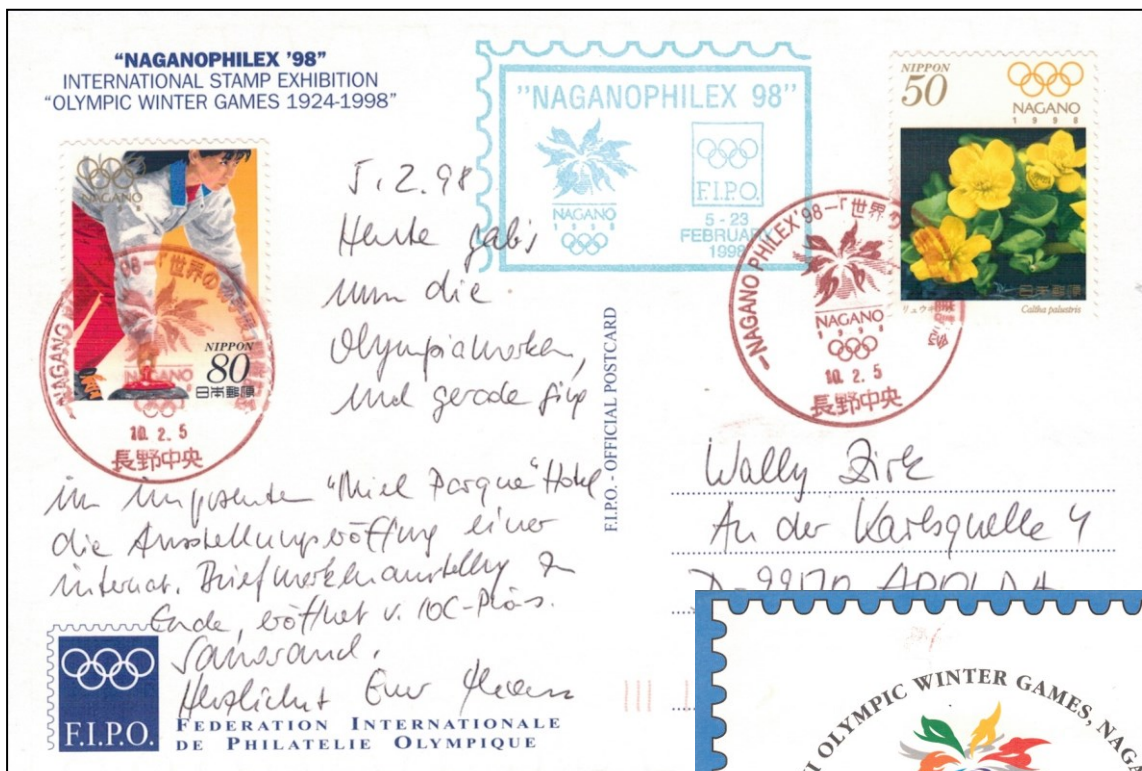 "NAGANOPHILEX '98"
INTERNATIONAL STAMP EXHIBITION
"OLYMPIC WINTER GAMES 1924-1998"
"NAGANOPHILEX 98"
NAGANO
1998
F.I.P.O.
5 - 23
FEBRUARY
1998
NIPPON
50
NAGANO
1998
日本郵便
Caltha palustris
NAGANO
NIPPON
80
日本郵便
98-「世界の
NAGANO
10.2.5
長野中央
-NAGANO PHILEX'98-「世界の
NAGANO
1998
10.2.5
長野中央
5.2.98
Heute gab's
nun die
Olympiamarken,
und gerade ging
im imposanten "Miel Parque" Hotel
die Ausstellungseröffnung einer
internat. Briefmarkenausstellung zu
Ende, eröffnet v. IOC-Präs.
Samarand.
Herzlichst Euer
F.I.P.O. - OFFICIAL POSTCARD
Wally Zirk
An der Karlsquelle 4
APOLDA
F.I.P.O.
FEDERATION INTERNATIONALE
DE PHILATELIE OLYMPIQUE
OLYMPIC WINTER GAMES,